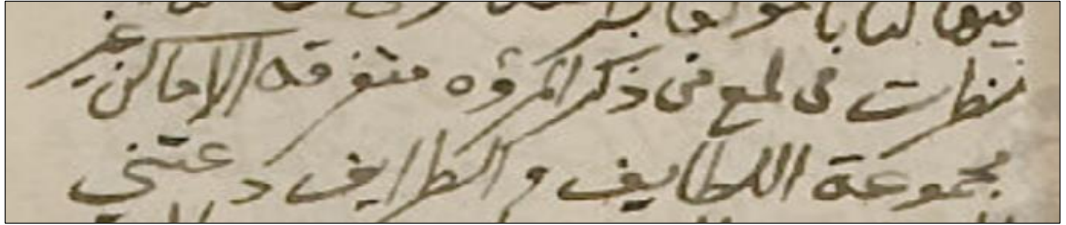 فيها كتابا
نظرت في لمع من ذكر المروه متفرقة الاماكن غير
مجموعة اللطايف والطرايف دعتني